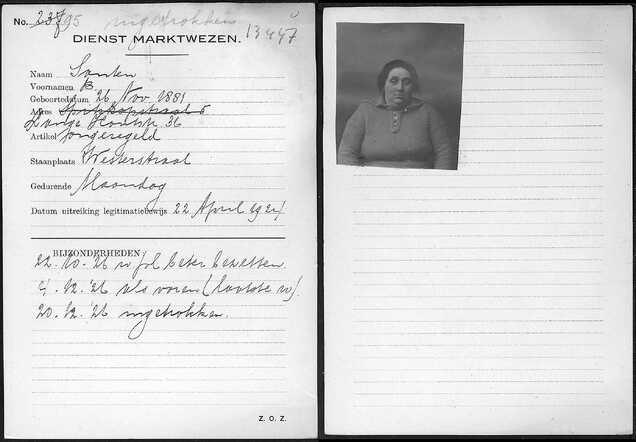 No. 23795 ingetrokken
13447
DIENST MARKTWEZEN.
Naam Santen
Voornamen B
Geboortedatum 26 Nov 1881
Adres Spitskopstraat 5
Lange Houtstr 36
Artikel ongeregeld
Staanplaats Westerstraat
Gedurende Maandag
Datum uitreiking legitimatiebewijs 22 April 1924
BIJZONDERHEDEN
22.10.26 beter bezetten.
4.12.'26 als voren (laatste w).
20.12.'26 ingetrokken.
Z. O. Z.